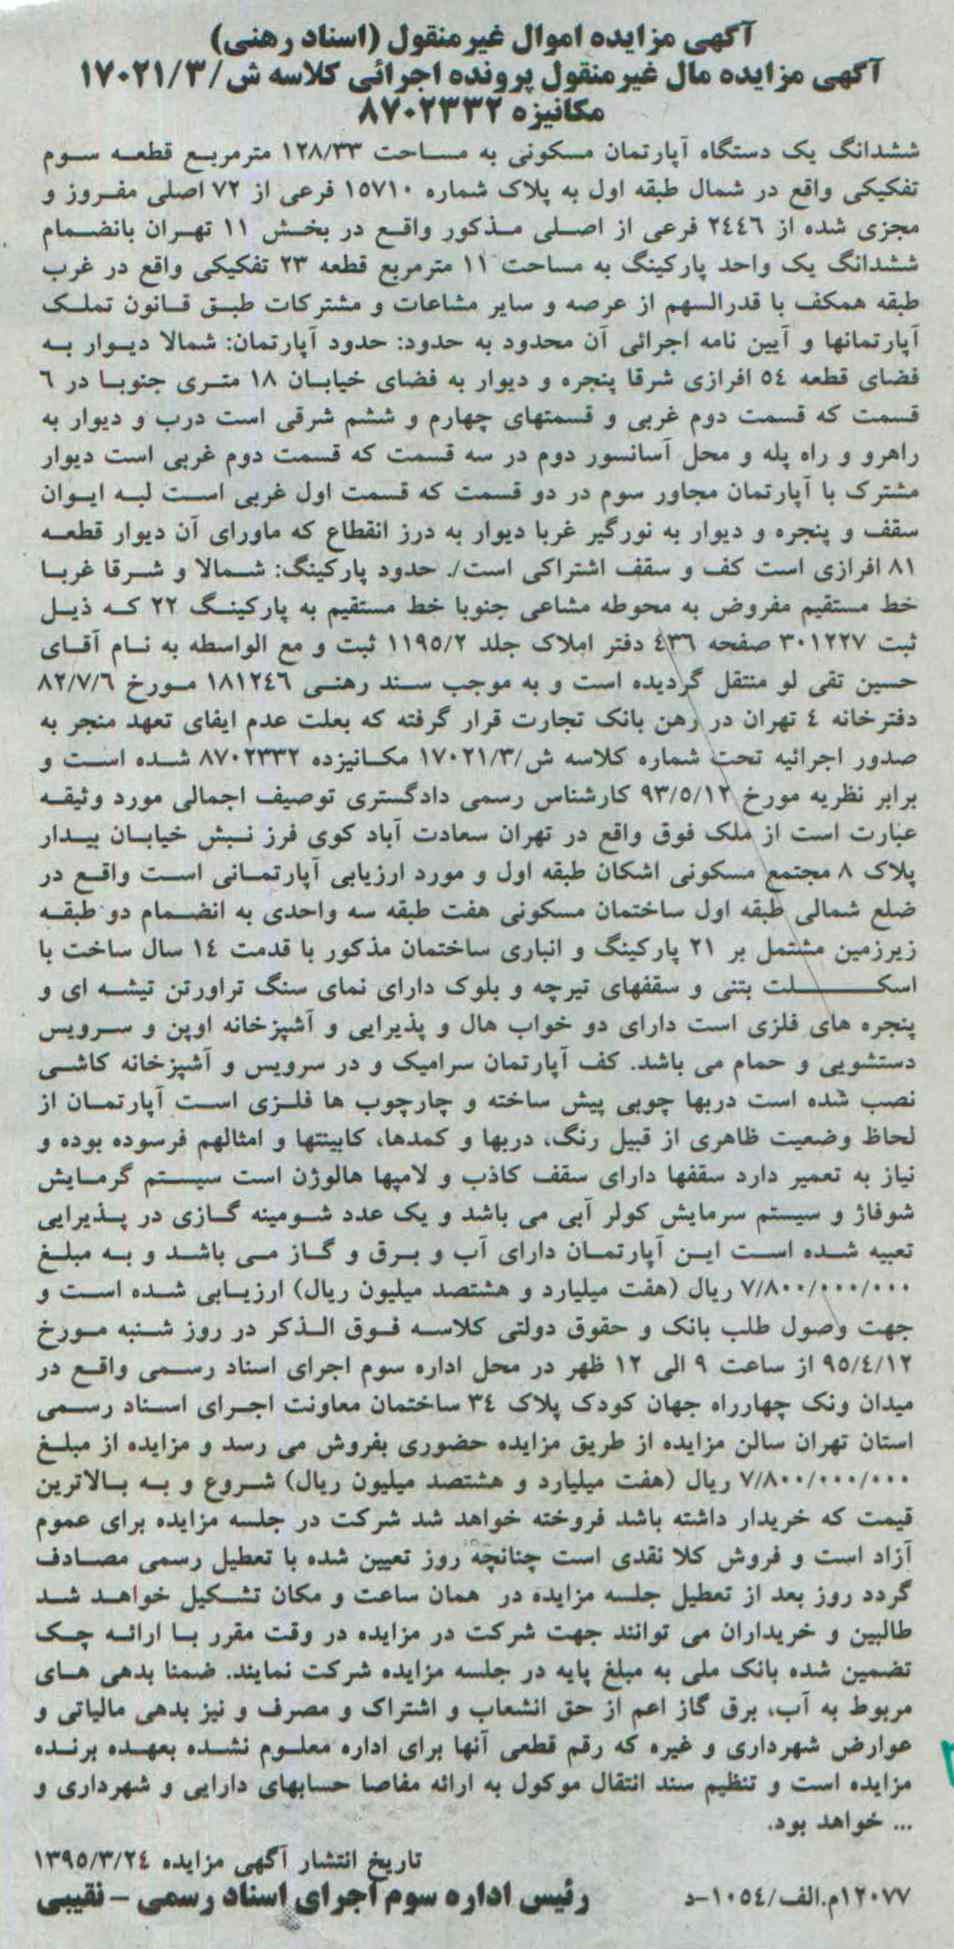 آگهی مزایده اموال غیر منقول (اسناد رهنی)
آگهی مزایده مال غیر منقول پرونده اجرائی کلاسه ش/۱۷۰۲۱/۳
مکانیزه ۸۷۰۲۳۳۲
ششدانگ یک دستگاه آپارتمان مسکونی به مساحت ۱۲۸/۳۳ مترمربع قطعه سوم
تفکیکی واقع در شمال طبقه اول به پلاک شماره ۱۵۷۱۰ فرعی از ۷۲ اصلی مفروز و
مجزی شده از ۲۴۴۶ فرعی از اصلی مذکور واقع در بخش ۱۱ تهران بانضمام
ششدانگ یک واحد پارکینگ به مساحت ۱۱ مترمربع قطعه ۲۳ تفکیکی واقع در غرب
طبقه همکف با قدرالسهم از عرصه و سایر مشاعات و مشترکات طبق قانون تملک
آپارتمانها و آیین نامه اجرائی آن محدود به حدود: حدود آپارتمان: شمالا دیوار به
فضای قطعه ۵۴ افرازی شرقا پنجره و دیوار به فضای خیابان ۱۸ متری جنوبا در ۶
قسمت که قسمت دوم غربی و قسمتهای چهارم و ششم شرقی است درب و دیوار به
راهرو و راه پله و محل آسانسور دوم در سه قسمت که قسمت دوم غربی است دیوار
مشترک با آپارتمان مجاور سوم در دو قسمت که قسمت اول غربی است لبه ایوان
سقف و پنجره و دیوار به نورگیر غربا دیوار به درز انقطاع که ماورای آن دیوار قطعه
۸۱ افرازی است کف و سقف اشتراکی است/. حدود پارکینگ: شمالا و شرقا غربا
خط مستقیم مفروض به محوطه مشاعی جنوبا خط مستقیم به پارکینگ ۲۲ که ذیل
ثبت ۳۰۱۲۲۷ صفحه ۴۳۶ دفتر املاک جلد ۱۱۹۵/۲ ثبت و مع الواسطه به نام آقای
حسین تقی لو منتقل گردیده است و به موجب سند رهنی ۱۸۱۲۴۶ مورخ ۸۲/۷/۶
دفترخانه ۴ تهران در رهن بانک تجارت قرار گرفته که بعلت عدم ایفای تعهد منجر به
صدور اجرائیه تحت شماره کلاسه ش/۱۷۰۲۱/۳ مکانیزده ۸۷۰۲۳۳۲ شده است و
برابر نظریه مورخ ۹۳/۵/۱۲ کارشناس رسمی دادگستری توصیف اجمالی مورد وثیقه
عبارت است از ملک فوق واقع در تهران سعادت آباد کوی فرز نبش خیابان بیدار
پلاک ۸ مجتمع مسکونی اشکان طبقه اول و مورد ارزیابی آپارتمانی است واقع در
ضلع شمالی طبقه اول ساختمان مسکونی هفت طبقه سه واحدی به انضمام دو طبقه
زیرزمین مشتمل بر ۲۱ پارکینگ و انباری ساختمان مذکور با قدمت ۱۴ سال ساخت با
اسکلت بتنی و سقفهای تیرچه و بلوک دارای نمای سنگ تراورتن تیشه ای و
پنجره های فلزی است دارای دو خواب هال و پذیرایی و آشپزخانه اوپن و سرویس
دستشویی و حمام می باشد. کف آپارتمان سرامیک و در سرویس و آشپزخانه کاشی
نصب شده است دربها چوبی پیش ساخته و چارچوب ها فلزی است آپارتمان از
لحاظ وضعیت ظاهری از قبیل رنگ، دربها و کمدها، کابینتها و امثالهم فرسوده بوده و
نیاز به تعمیر دارد سقفها دارای سقف کاذب و لامپها هالوژن است سیستم گرمایش
شوفاژ و سیستم سرمایش کولر آبی می باشد و یک عدد شومینه گازی در پذیرایی
تعبیه شده است این آپارتمان دارای آب و برق و گاز می باشد و به مبلغ
۷/۸۰۰/۰۰۰/۰۰۰ ریال (هفت میلیارد و هشتصد میلیون ریال) ارزیابی شده است و
جهت وصول طلب بانک و حقوق دولتی کلاسه فوق الذکر در روز شنبه مورخ
۹۵/۴/۱۲ از ساعت ۹ الی ۱۲ ظهر در محل اداره سوم اجرای اسناد رسمی واقع در
میدان ونک چهارراه جهان کودک پلاک ۳۴ ساختمان معاونت اجرای اسناد رسمی
استان تهران سالن مزایده از طریق مزایده حضوری بفروش می رسد و مزایده از مبلغ
۷/۸۰۰/۰۰۰/۰۰۰ ریال (هفت میلیارد و هشتصد میلیون ریال) شروع و به بالاترین
قیمت که خریدار داشته باشد فروخته خواهد شد شرکت در جلسه مزایده برای عموم
آزاد است و فروش کلا نقدی است چنانچه روز تعیین شده با تعطیل رسمی مصادف
گردد روز بعد از تعطیل جلسه مزایده در همان ساعت و مکان تشکیل خواهد شد
طالبین و خریداران می توانند جهت شرکت در مزایده در وقت مقرر با ارائه چک
تضمین شده بانک ملی به مبلغ پایه در جلسه مزایده شرکت نمایند. ضمنا بدهی های
مربوط به آب، برق گاز اعم از حق انشعاب و اشتراک و مصرف و نیز بدهی مالیاتی و
عوارض شهرداری و غیره که رقم قطعی آنها برای اداره معلوم نشده بعهده برنده
مزایده است و تنظیم سند انتقال موکول به ارائه مفاصا حسابهای دارایی و شهرداری و
... خواهد بود.
تاریخ انتشار آگهی مزایده ۱۳۹۵/۳/۲۴
۱۲۰۷۷م.الف/۱۰۵۴-د رئیس اداره سوم اجرای اسناد رسمی - نقیبی